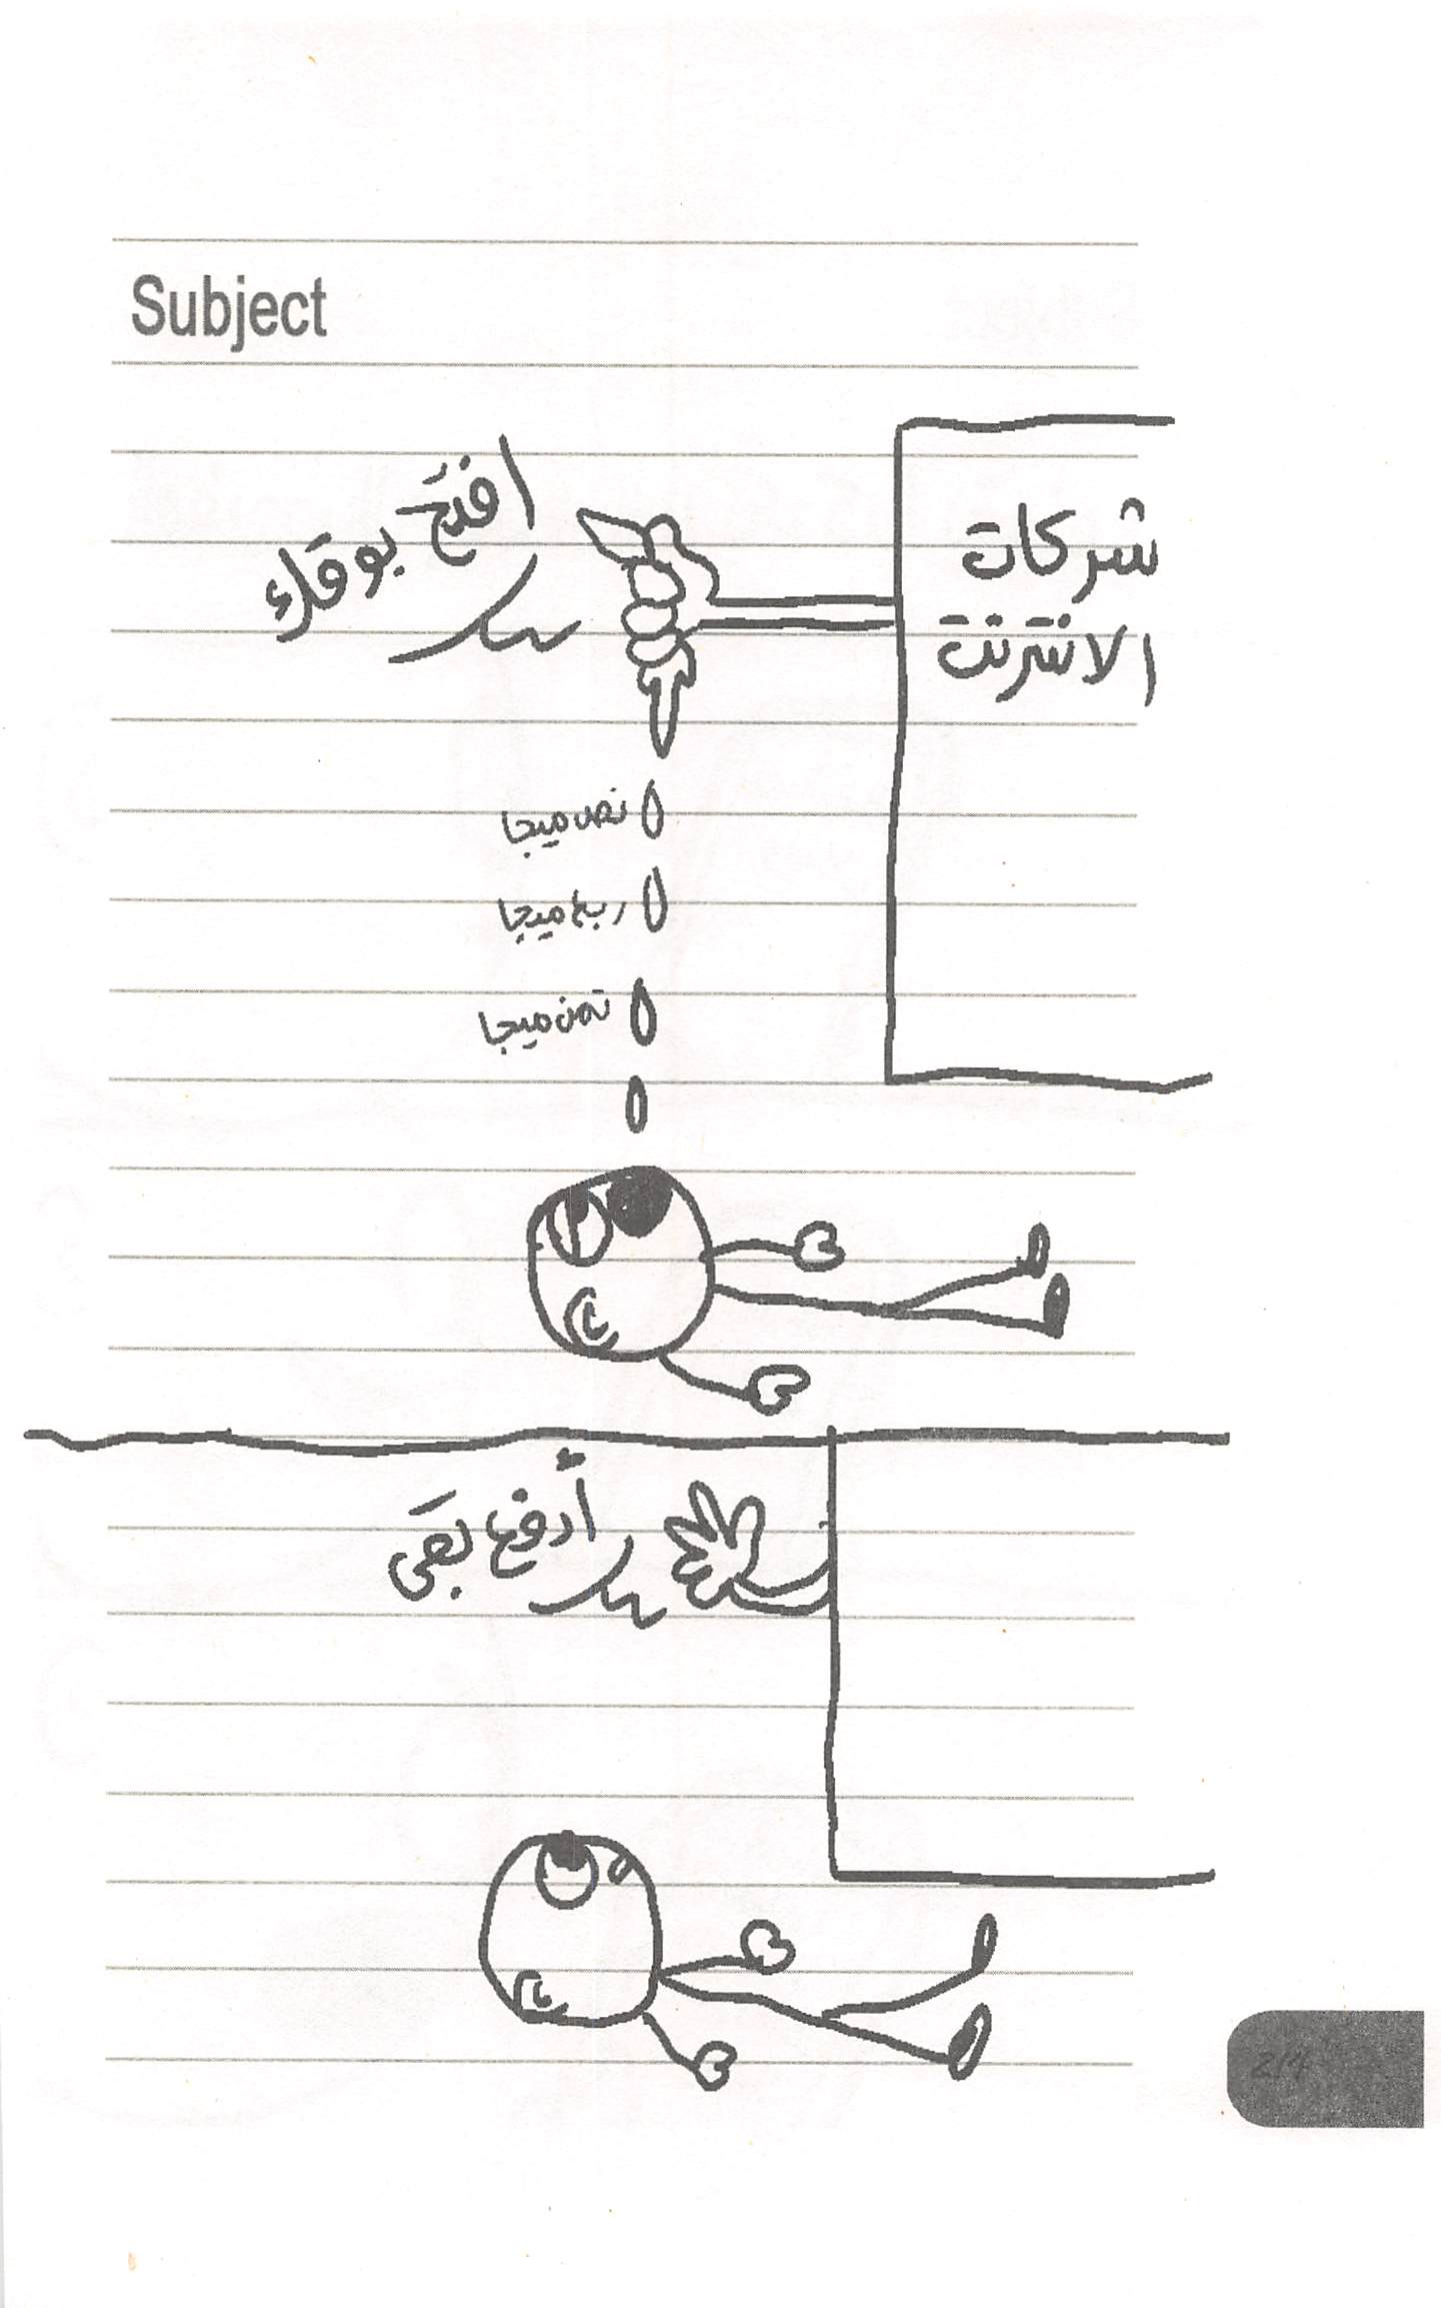 Subject
شركات
الانترنت
افتح بوقك
نص ميجا
ربع ميجا
تمن ميجا
أدفع بقى
214